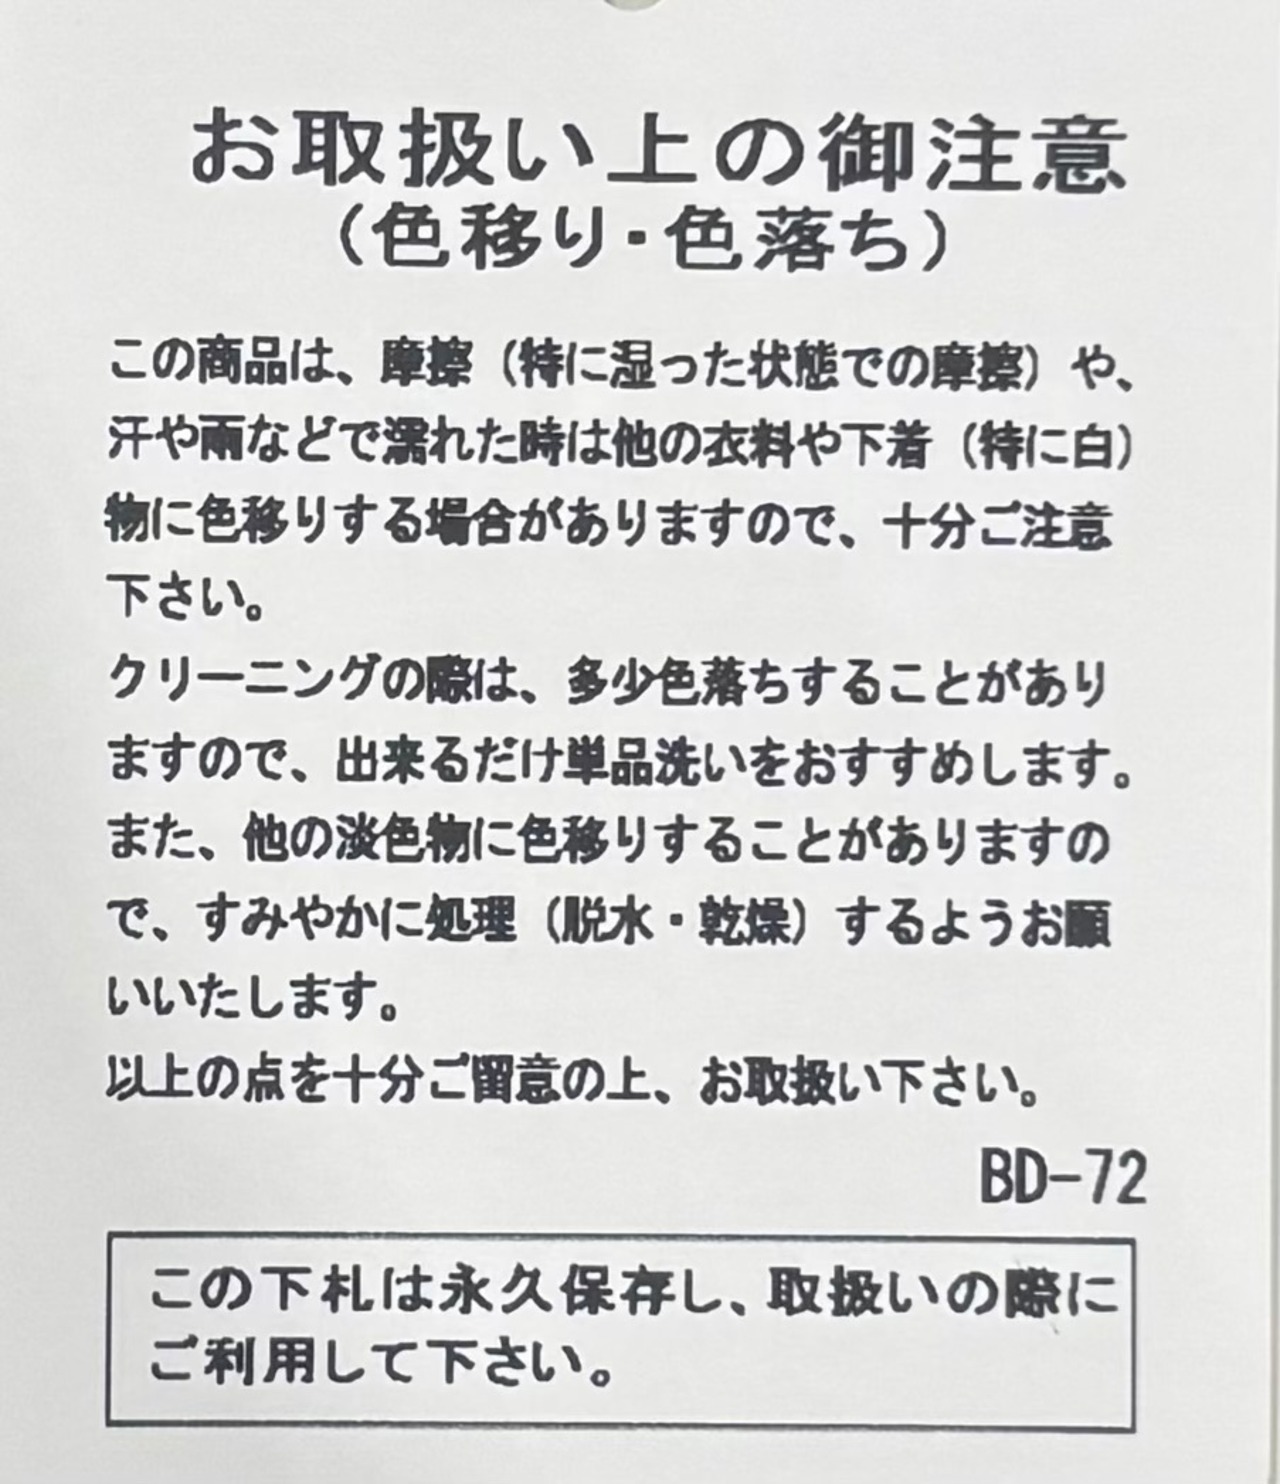 お取扱い上の御注意
（色移り・色落ち）
この商品は、摩擦（特に湿った状態での摩擦）や、
汗や雨などで濡れた時は他の衣料や下着（特に白）
物に色移りする場合がありますので、十分ご注意
下さい。
クリーニングの際は、多少色落ちすることがあり
ますので、出来るだけ単品洗いをおすすめします。
また、他の淡色物に色移りすることがありますの
で、すみやかに処理（脱水・乾燥）するようお願
いいたします。
以上の点を十分ご留意の上、お取扱い下さい。
BD-72
この下札は永久保存し、取扱いの際に
ご利用して下さい。